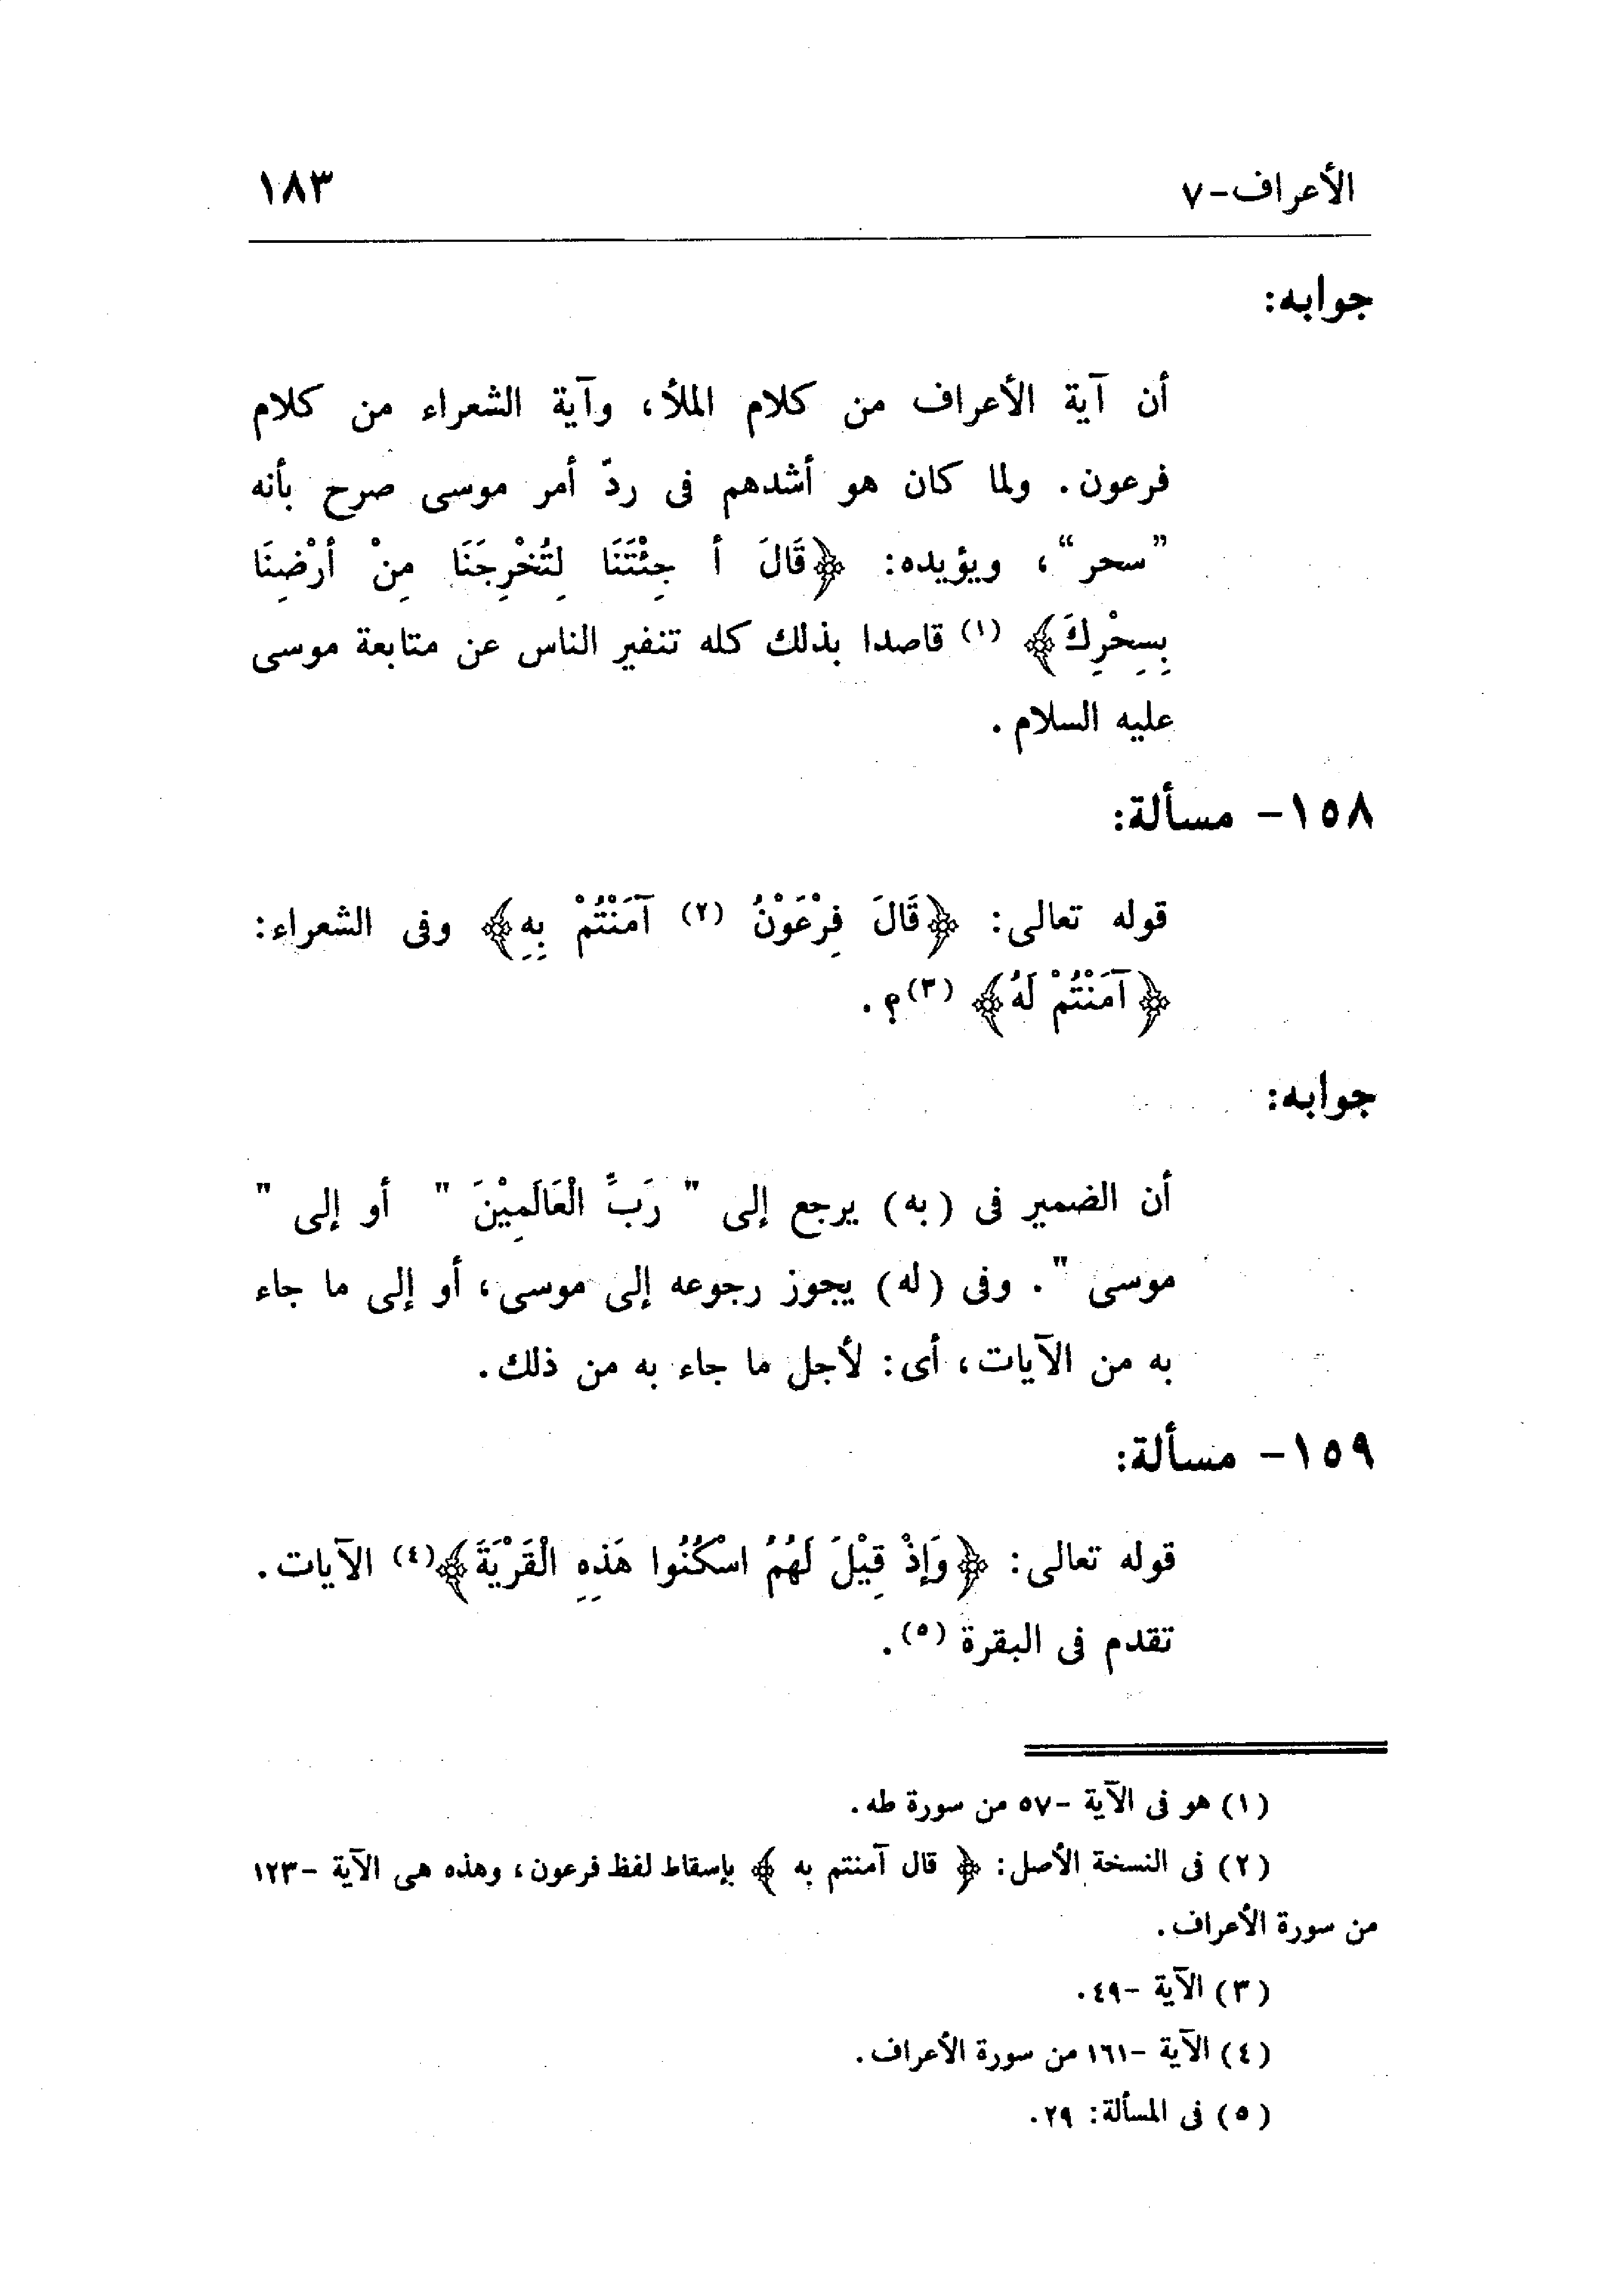 الأعراف-٧ ١٨٣
جوابه:
أن آية الأعراف من كلام الملأ، وآية الشعراء من كلام
فرعون. ولما كان هو أشدهم فى ردّ أمر موسى صرح بأنه
”سحر“، ويؤيده: ﴿قَالَ أ جِئْتَنَا لِتُخْرِجَنَا مِنْ أرْضِنَا
بِسِحْرِكَ﴾ (١) قاصدا بذلك كله تنفير الناس عن متابعة موسى
عليه السلام.
١٥٨- مسألة:
قوله تعالى: ﴿قَالَ فِرْعَوْنُ (٢) آمَنْتُمْ بِهِ﴾ وفى الشعراء:
﴿آمَنْتُمْ لَهُ﴾ (٣)؟.
جوابه:
أن الضمير فى (به) يرجع إلى " رَبِّ الْعَالَمِيْنَ " أو إلى "
موسى ". وفى (له) يجوز رجوعه إلى موسى، أو إلى ما جاء
به من الآيات، أى: لأجل ما جاء به من ذلك.
١٥٩- مسألة:
قوله تعالى: ﴿وَإِذْ قِيْلَ لَهُمُ اسْكُنُوا هَذِهِ الْقَرْيَةَ﴾(٤) الآيات.
تقدم فى البقرة (٥).
(١) هو فى الآية -٥٧ من سورة طه.
(٢) فى النسخة الأصل: ﴿ قال آمنتم به ﴾ بإسقاط لفظ فرعون، وهذه هى الآية -١٢٣
من سورة الأعراف.
(٣) الآية -٤٩.
(٤) الآية -١٦١ من سورة الأعراف.
(٥) فى المسألة: ٢٩.